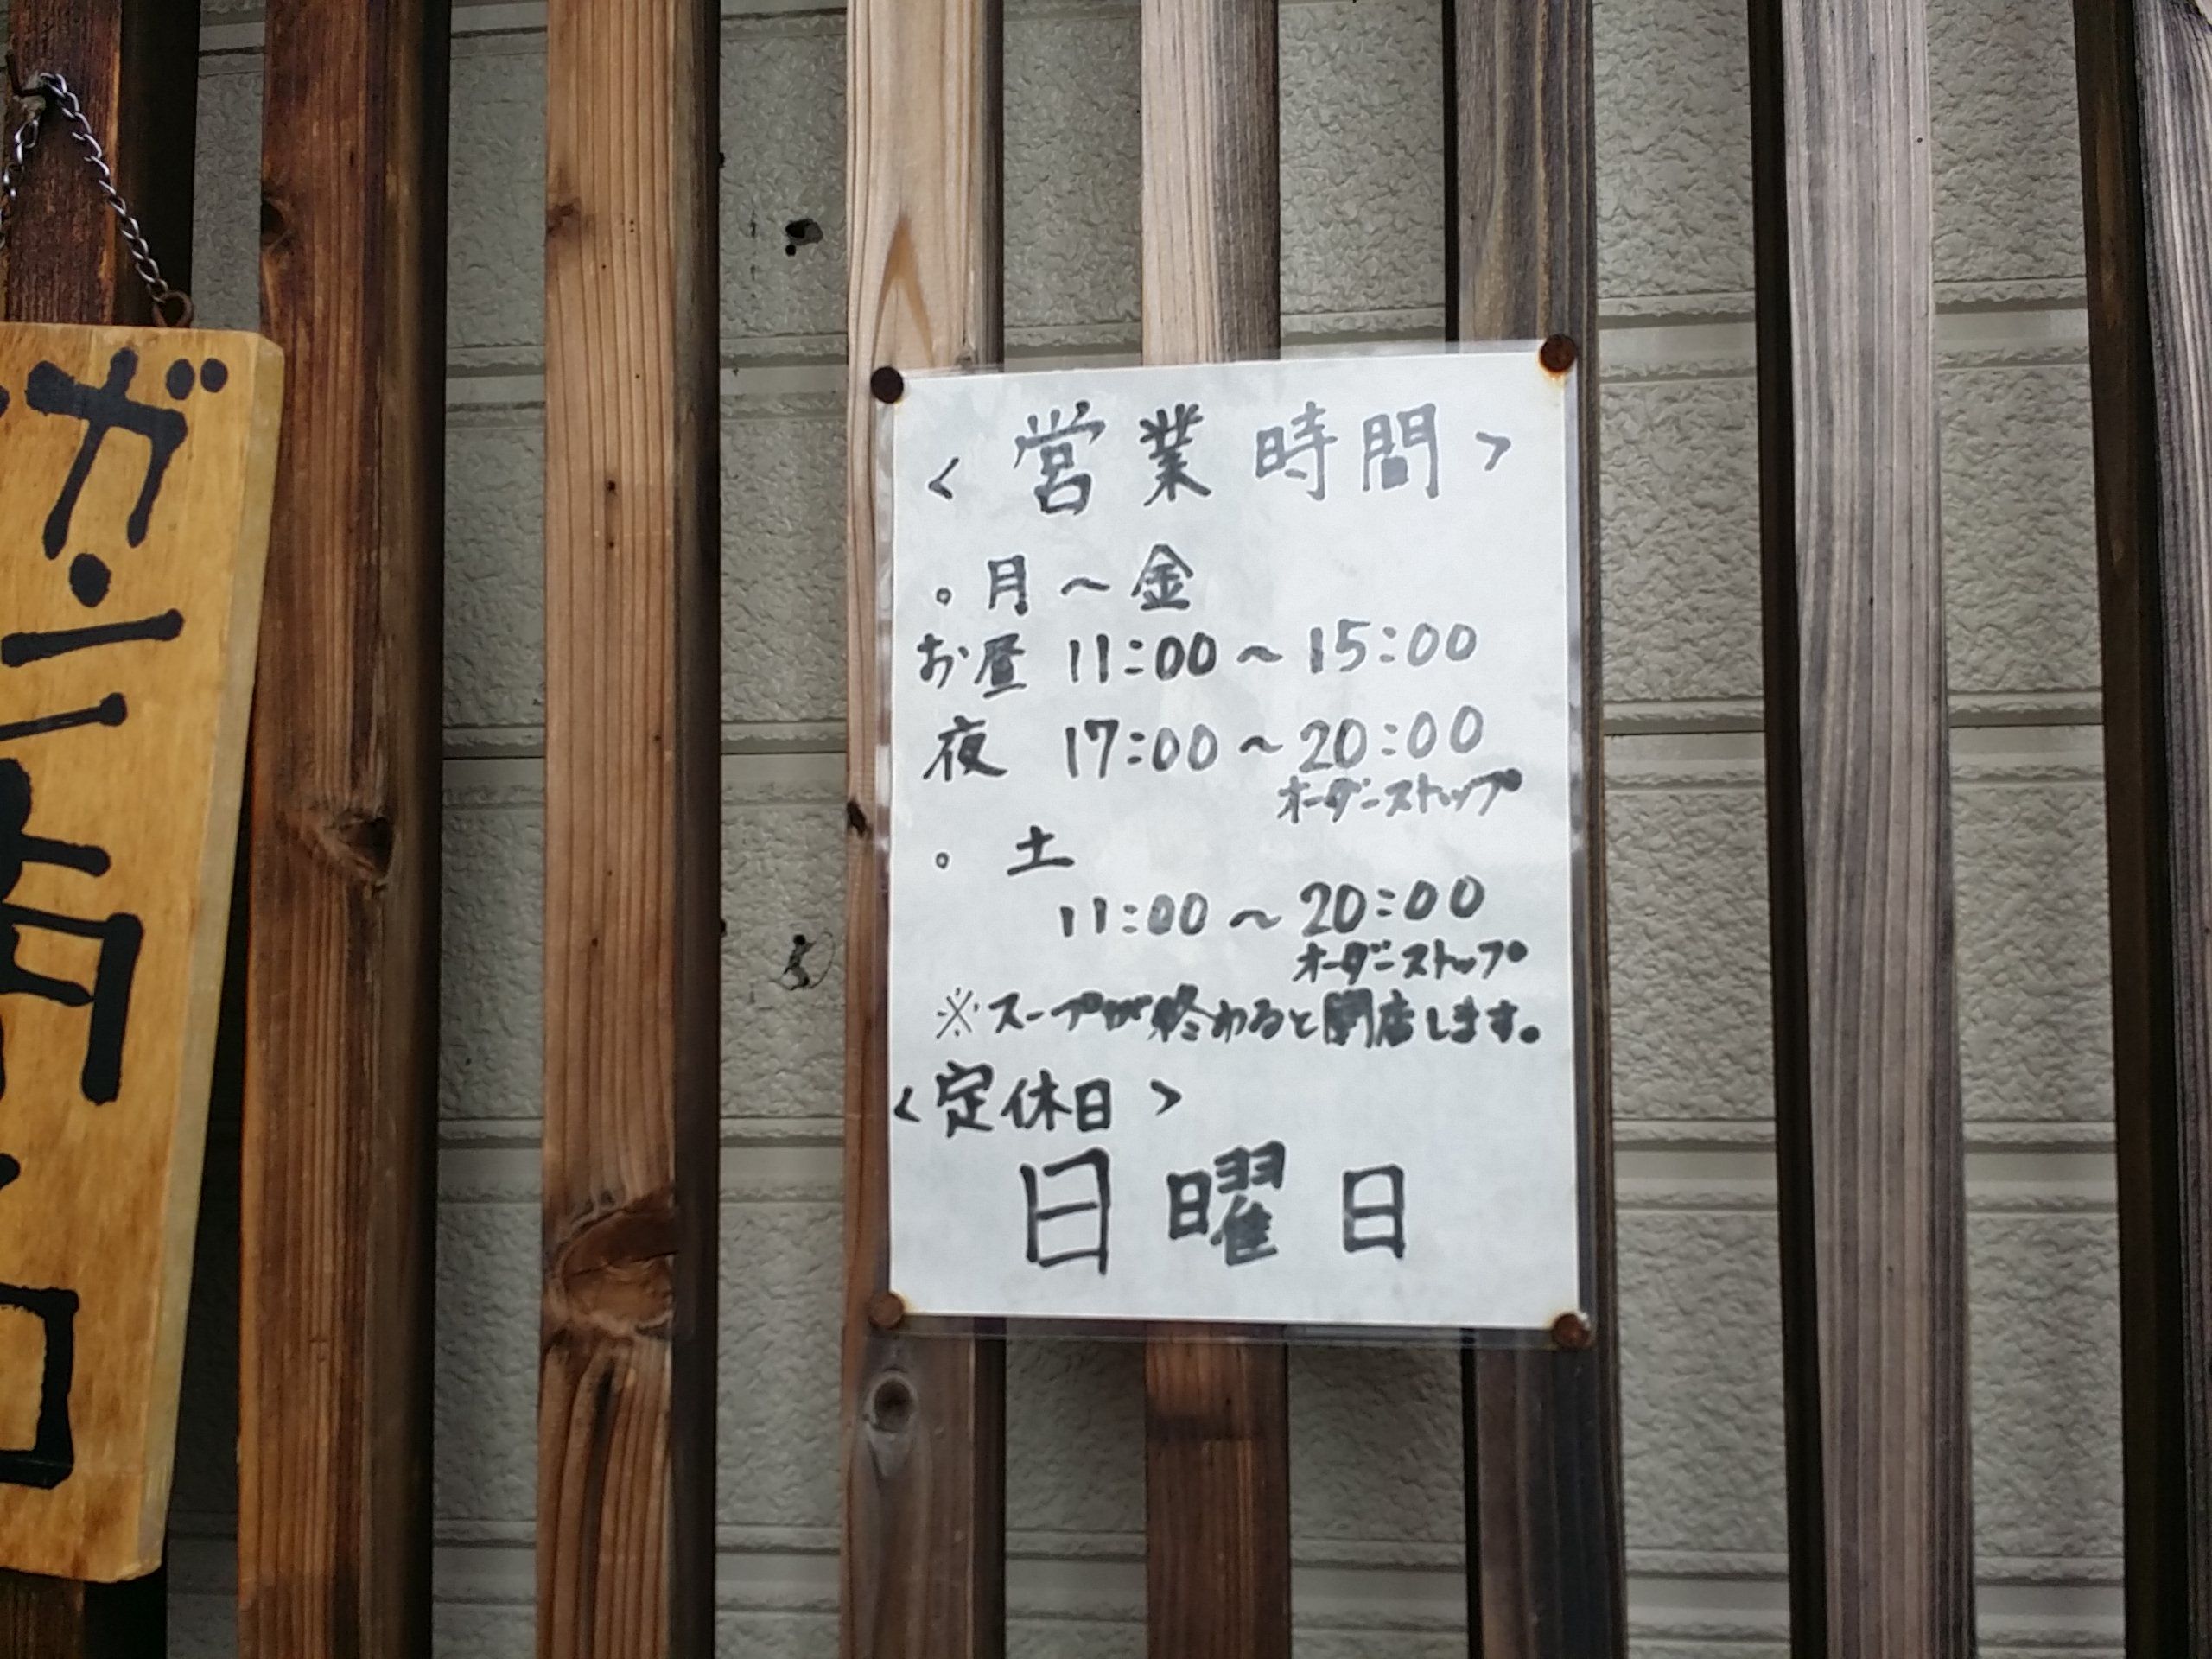 ＜営業時間＞
。月～金
お昼 11:00～15:00
夜 17:00～20:00
オーダーストップ
。土
11:00～20:00
オーダーストップ
※スープが終わると閉店します。
＜定休日＞
日曜日